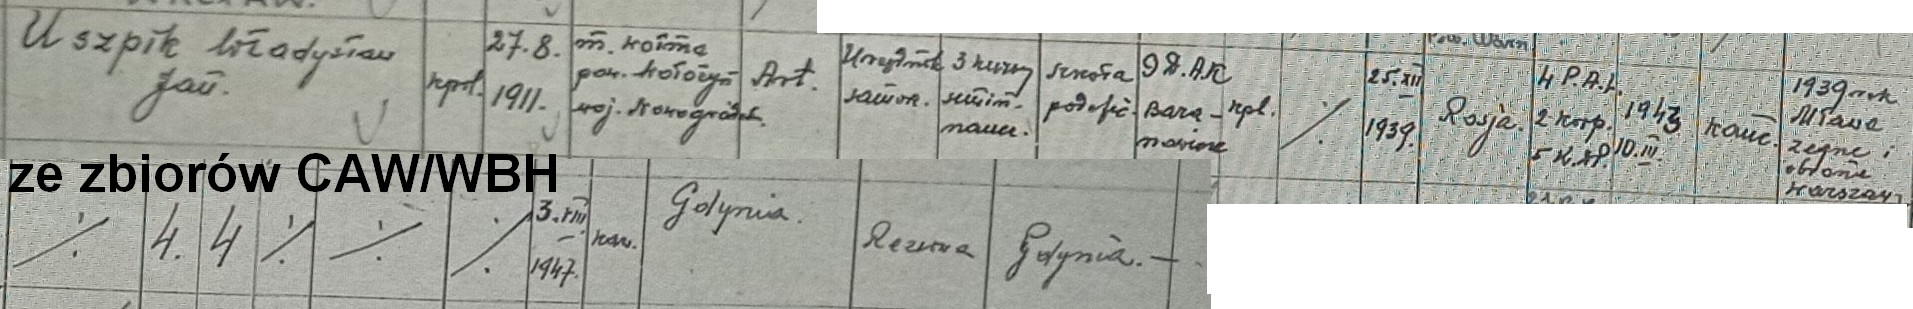 Uszpik Władysław
Jan.
kpl.
27.8.
1911.
m. Kojme
pow. Kołożyń
woj. Nowogródek.
Art.
Urzędnik
samorz.
3 kursy
semin.
naucz.
szkoła
podofic.
9 D.A.K
Bara-
nowicze
kpl.
25.XII
1939.
Rosja.
4 P.A.L.
2 Korp.
5 K.D.P.
1943
10.III.
kanc.
1939 rok
Mława
Zegrze i
obrona
Warszawy
ze zbiorów CAW/WBH
4.
4
3.VIII
1947.
kaw.
Gdynia.
Rezerwa
Gdynia.—